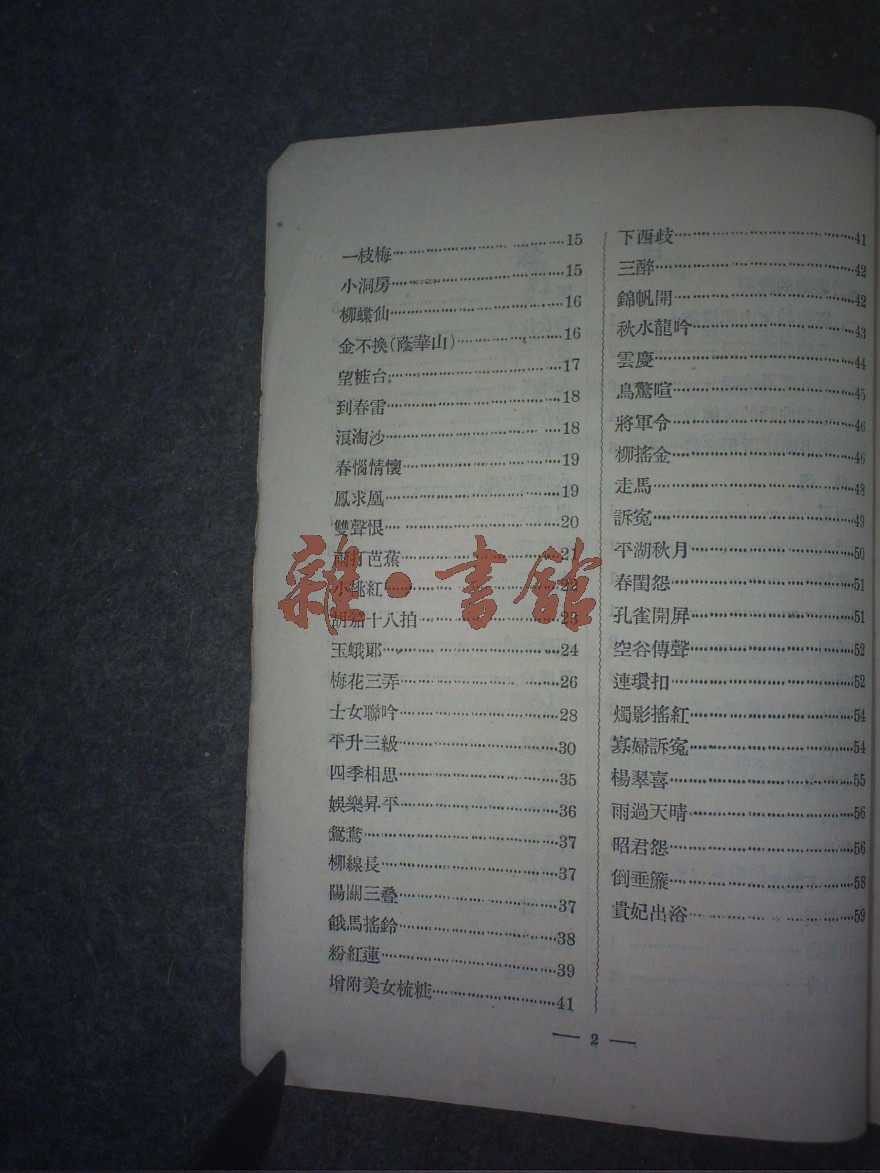 一枝梅 15
小洞房 15
柳蝶仙 16
金不換(蔭華山) 16
望粧台 17
到春雷 18
浪淘沙 18
春惱情懷 19
鳳求凰 19
雙聲恨 20
雨打芭蕉 21
小桃紅 22
胡笳十八拍 23
玉蛾耶 24
梅花三弄 26
士女聯吟 28
平升三級 30
四季相思 35
娛樂昇平 36
鴛鴦 37
柳線長 37
陽關三叠 37
餓馬搖鈴 38
粉紅蓮 39
增附美女梳粧 41
下西歧 41
三醉 42
錦帆開 42
秋水龍吟 43
雲慶 44
鳥驚喧 45
將軍令 46
柳搖金 46
走馬 48
訴冤 49
平湖秋月 50
春閨怨 51
孔雀開屏 51
空谷傳聲 52
連環扣 52
燭影搖紅 54
寡婦訴冤 54
楊翠喜 55
雨過天晴 56
昭君怨 56
倒垂簾 58
貴妃出浴 59
— 2 —
雜·書館